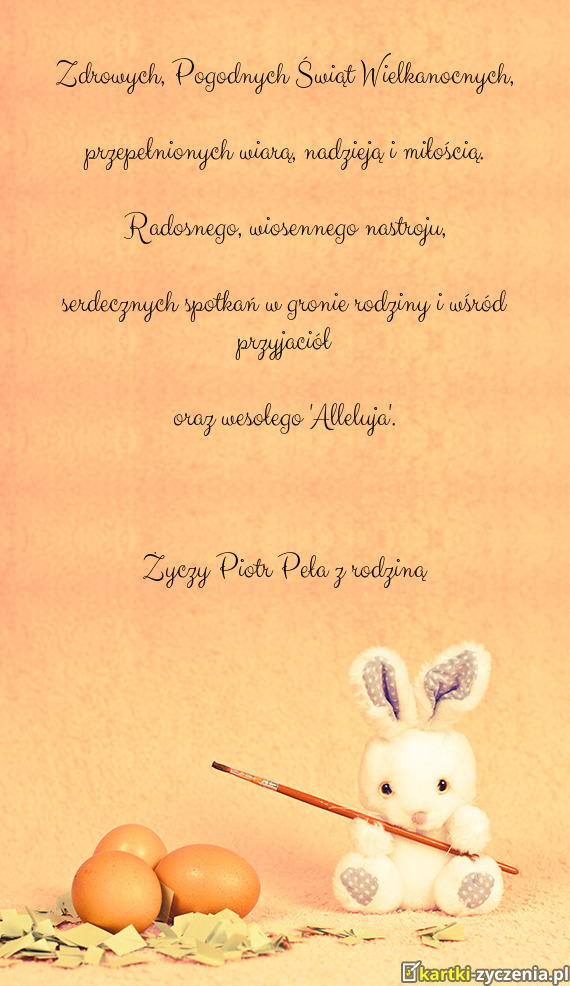 Zdrowych, Pogodnych Świąt Wielkanocnych,
przepełnionych wiarą, nadzieją i miłością.
Radosnego, wiosennego nastroju,
serdecznych spotkań w gronie rodziny i wśród
przyjaciół
oraz wesołego 'Alleluja'.
Życzy Piotr Peła z rodziną
kartki-zyczenia.pl